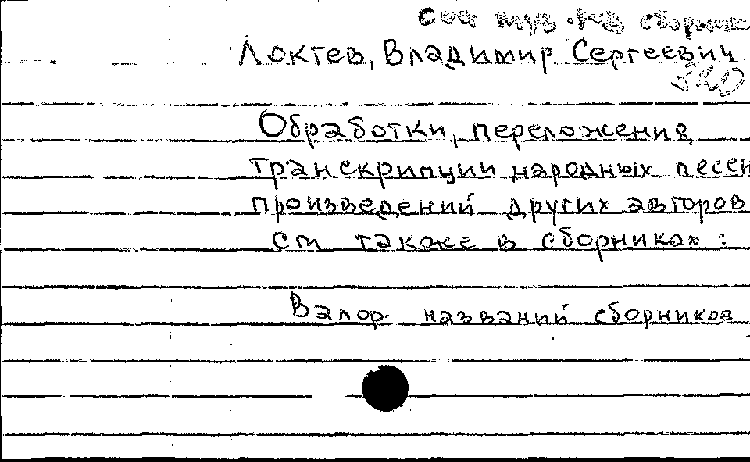 сборник
Локтев, Владимир Сергеевич
Обработки, переложения,
транскрипции народных песен
произведений других авторов
см также в сборниках:
В алф. названий сборников